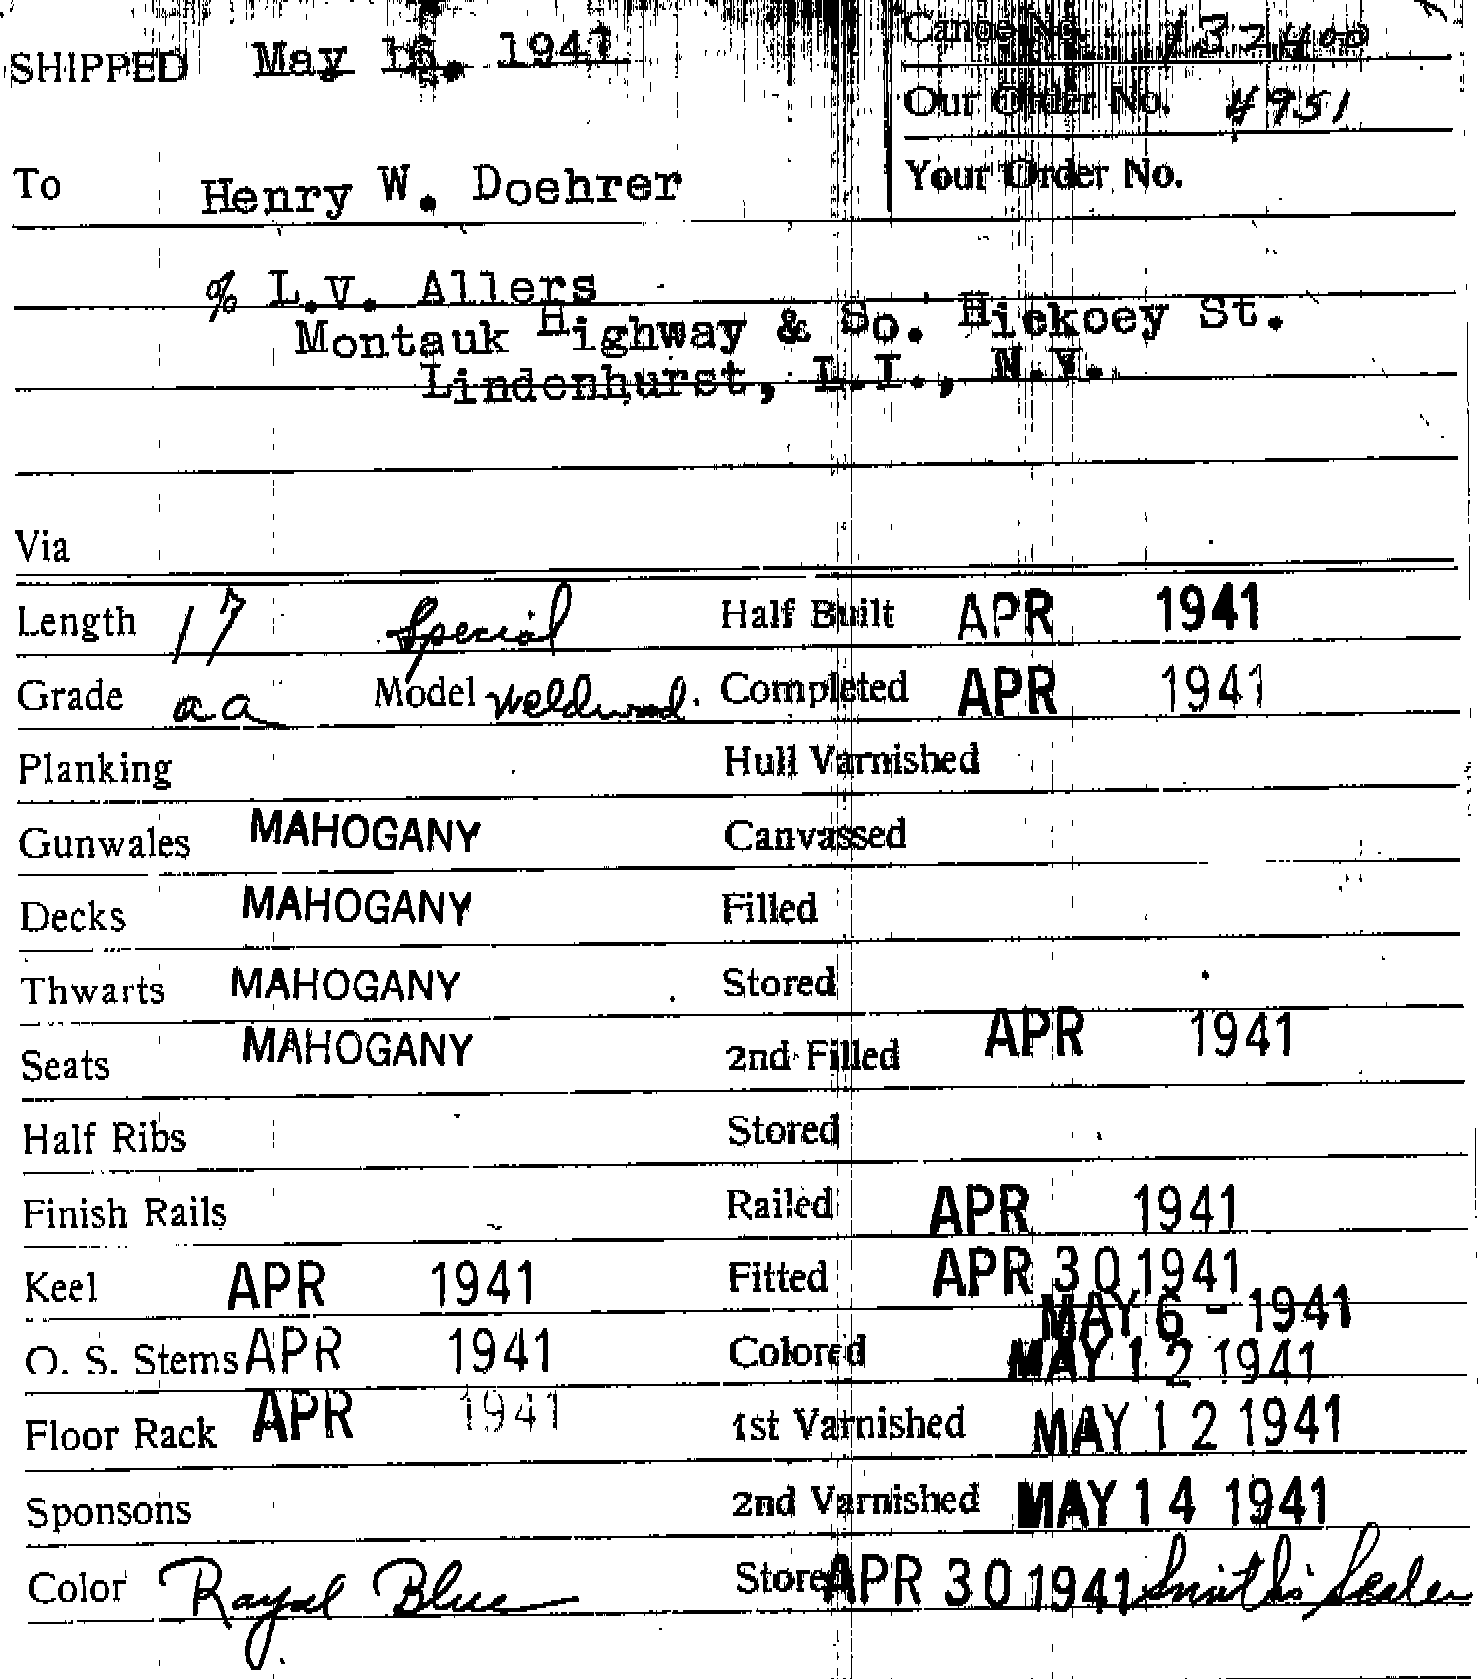 SHIPPED May 16, 1941 Canoe No. 132400
Our Order No. 4951
To Henry W. Doehrer Your Order No.
% L.V. Allers
Montauk Highway & So. Hickoey St.
Lindenhurst, L.I., N.Y.
Via
Length 17 Special Half Built APR 1941
Grade aa Model Weldwood. Completed APR 1941
Planking Hull Varnished
Gunwales MAHOGANY Canvassed
Decks MAHOGANY Filled
Thwarts MAHOGANY Stored
Seats MAHOGANY 2nd Filled APR 1941
Half Ribs Stored
Finish Rails Railed APR 1941
Keel APR 1941 Fitted APR 30 1941
MAY 6 - 1941
O. S. Stems APR 1941 Colored MAY 12 1941
Floor Rack APR 1941 1st Varnished MAY 12 1941
Sponsons 2nd Varnished MAY 14 1941
Color Royal Blue Stored APR 30 1941 Smith's Sealer